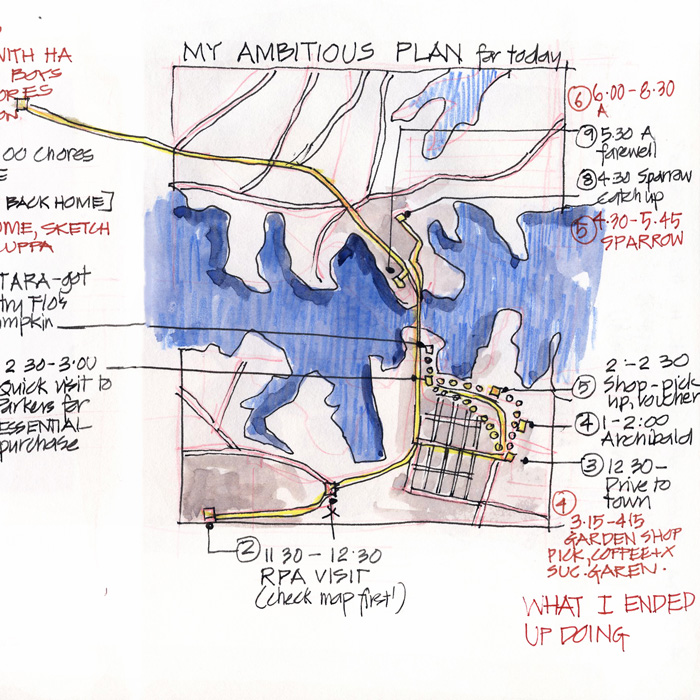 MY AMBITIOUS PLAN for today
WITH HA
BOYS
ORES
ON
00 Chores
E
BACK HOME]
OME, SKETCH
LUPPA
TARA-got
try Flo's
umpkin
2 30-3.00
quick visit to
arkers for
ESSENTIAL
purchase
⑥ 6.00-8.30
A
⑨ 5.30 A
farewell
⑧ 4.30 Sparrow
catch up
⑤ 4.30-5.45
SPARROW
2-2 30
⑤ Shop-pick
up, voucher
④ 1-2:00
Archibald
③ 12.30-
Drive to
town
④
3.15-415
GARDEN SHOP
PICK, COFFEE+X
SUC. GAREN.
② 11 30 - 12.30
RPA VISIT
(check map first!)
WHAT I ENDED
UP DOING